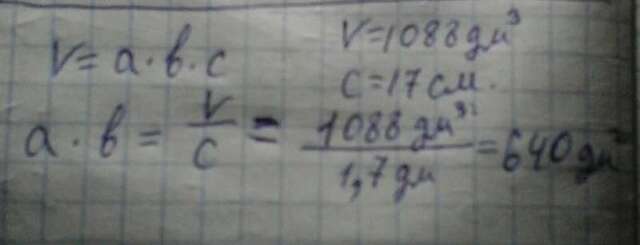 V = a · b · c
V = 1088 дм³
c = 17 см.
a · b = V/c = 1088 дм³/1,7 дм = 640 дм²